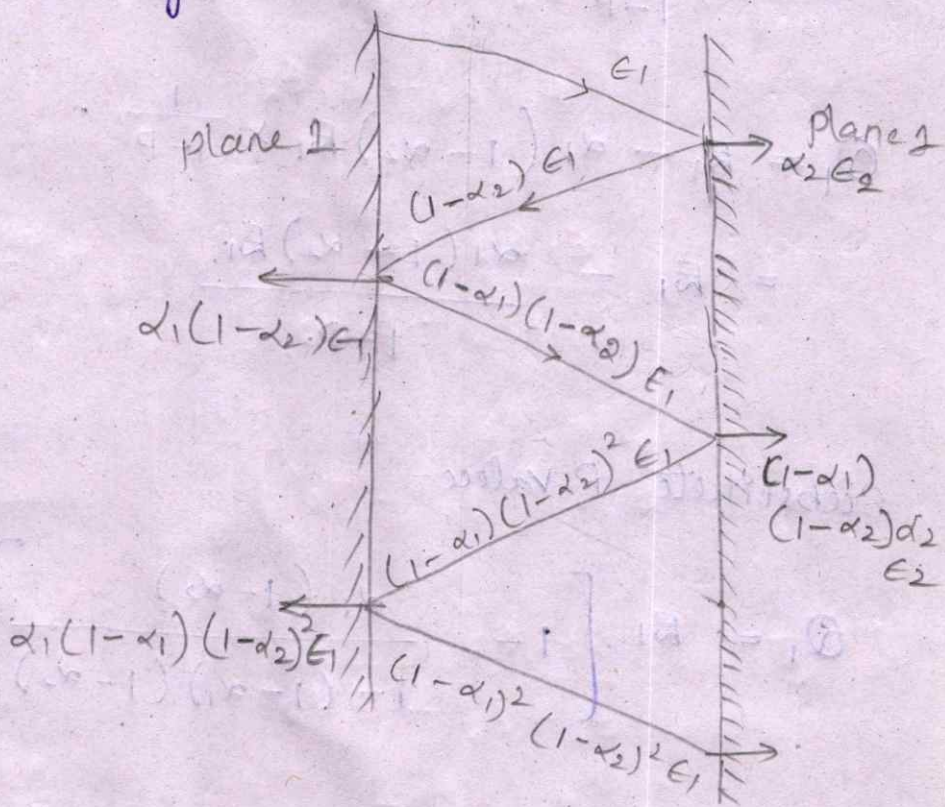 ϵ1
plane 1
plane 1
α2 ϵ2
(1-α2) ϵ1
α1(1-α2)ϵ1
(1-α1)(1-α2) ϵ1
(1-α1)(1-α2)² ϵ1
(1-α1)
(1-α2)α2
ϵ2
α1(1-α1)(1-α2)²ϵ1
(1-α1)²
(1-α2)² ϵ1